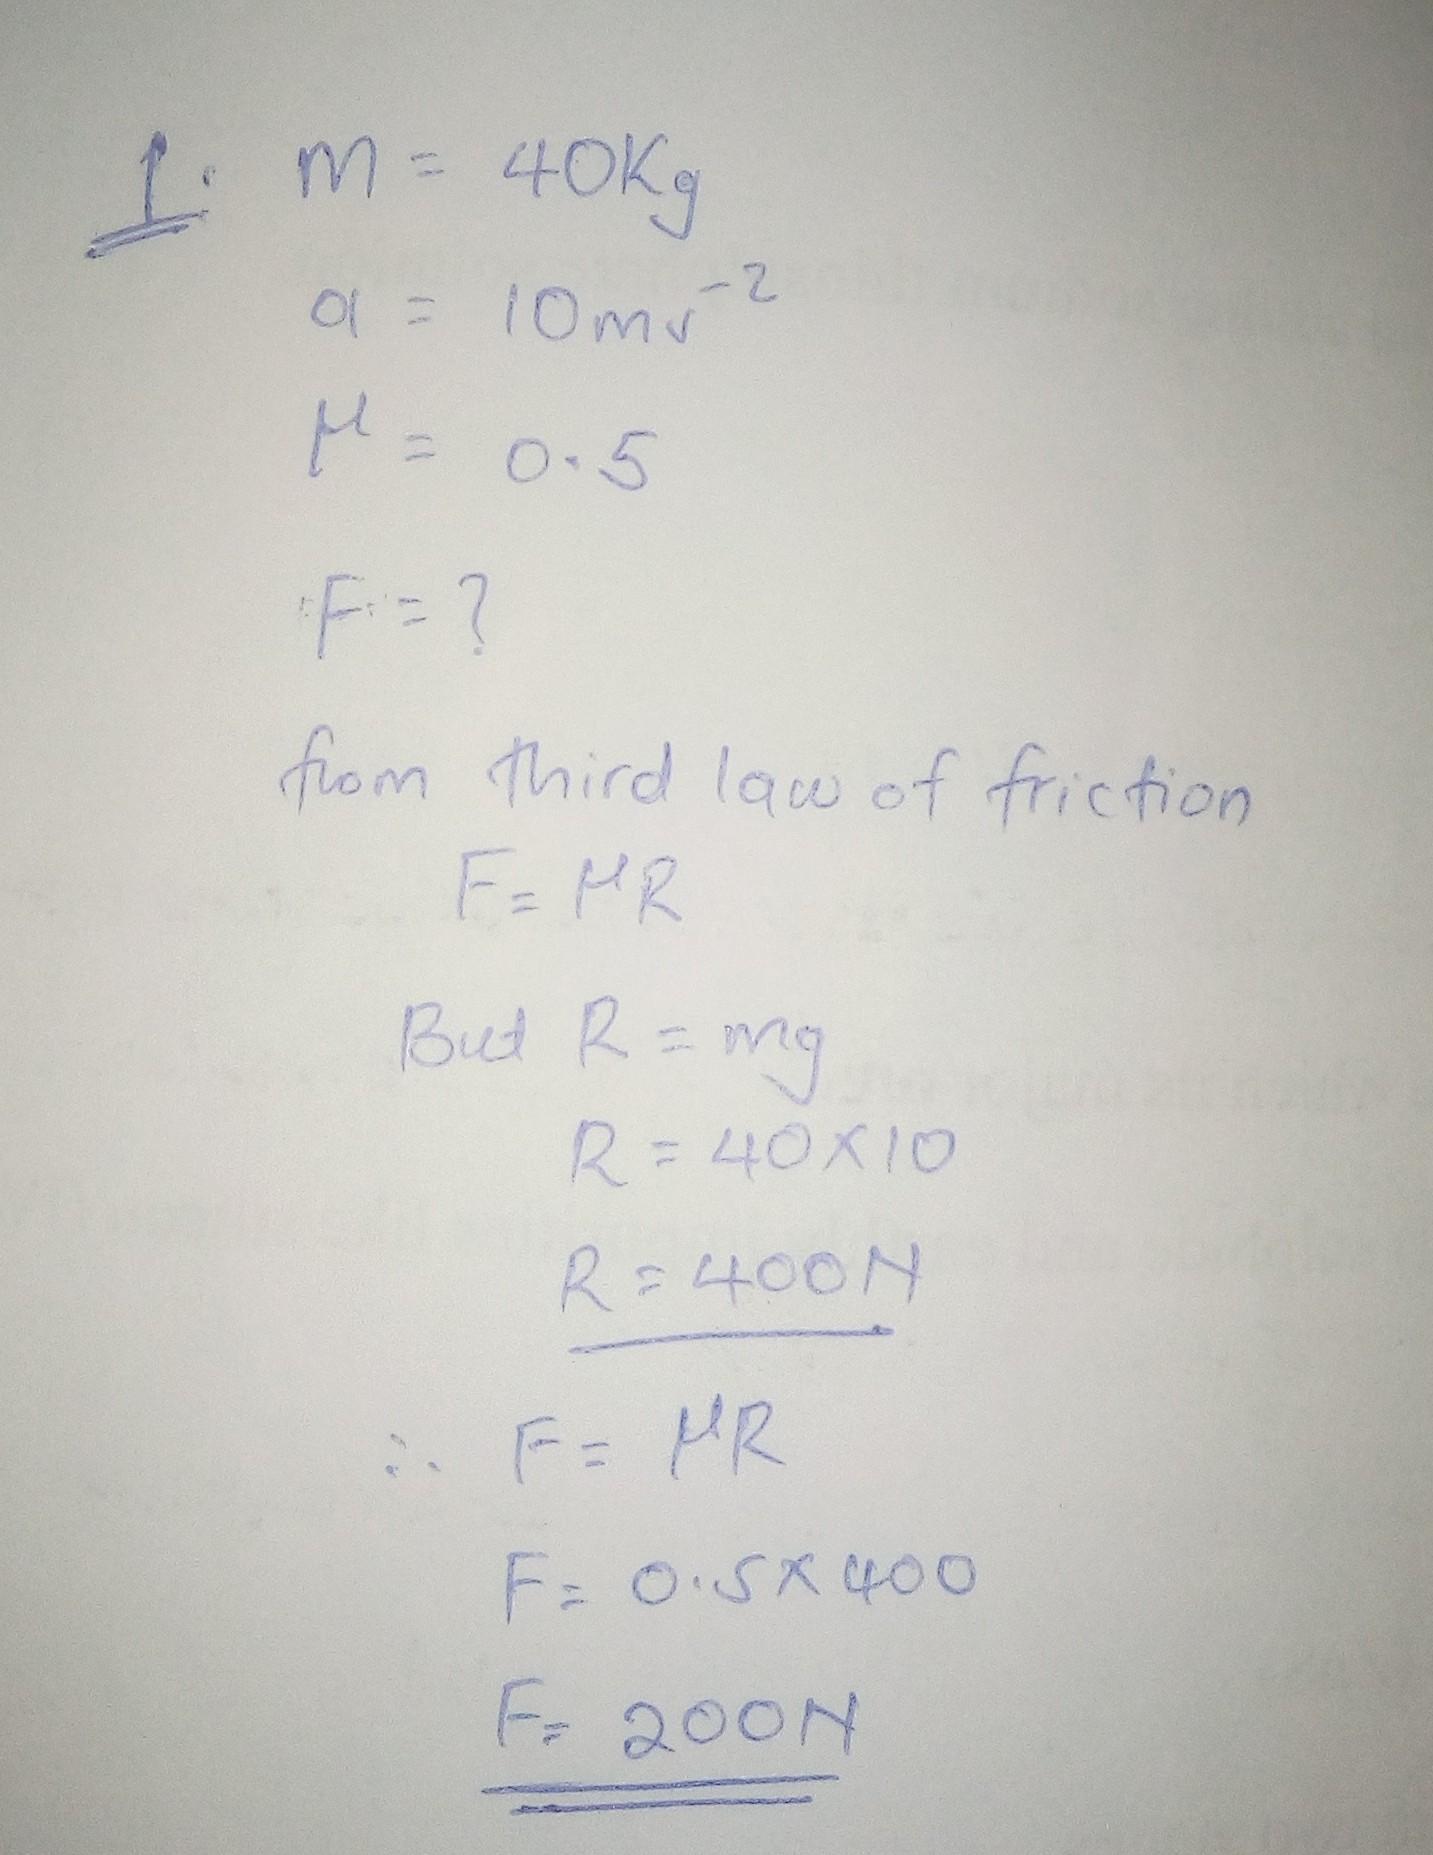 1. m = 40Kg
a = 10ms⁻²
μ = 0.5
F = ?
from third law of friction
F = μR
But R = mg
R = 40 × 10
R = 400N
∴ F = μR
F = 0.5 × 400
F = 200N